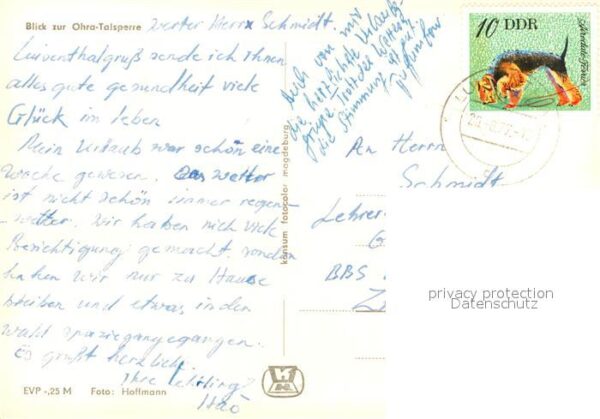 Blick zur Ohra-Talsperre
werter Herrx Schmidt.
Luisenthalgruß sende ich Ihnen
alles gute gesundheit viele
Glück im leben
Mein Urlaub war schön eine
woche gewesen. Das wetter
ist nicht schön immer regen-
wetter. Wir haben nich viele
Besichtigung gemacht. sondern
haben wir nur zu Hause
bleiben und etwas in den
wald spaziegangegangen.
Es grüßt herzlich.
Ihre
Hào
Auch von mir
die herzlichste Urlaubs-
grüße. Trotz des Wetters,
die Stimmung ist gut
konsum fotocolor magdeburg
EVP -,25 M Foto: Hoffmann
10 DDR
An Herrn
Schmidt
Lehrer-
BBS
privacy protection
Datenschutz